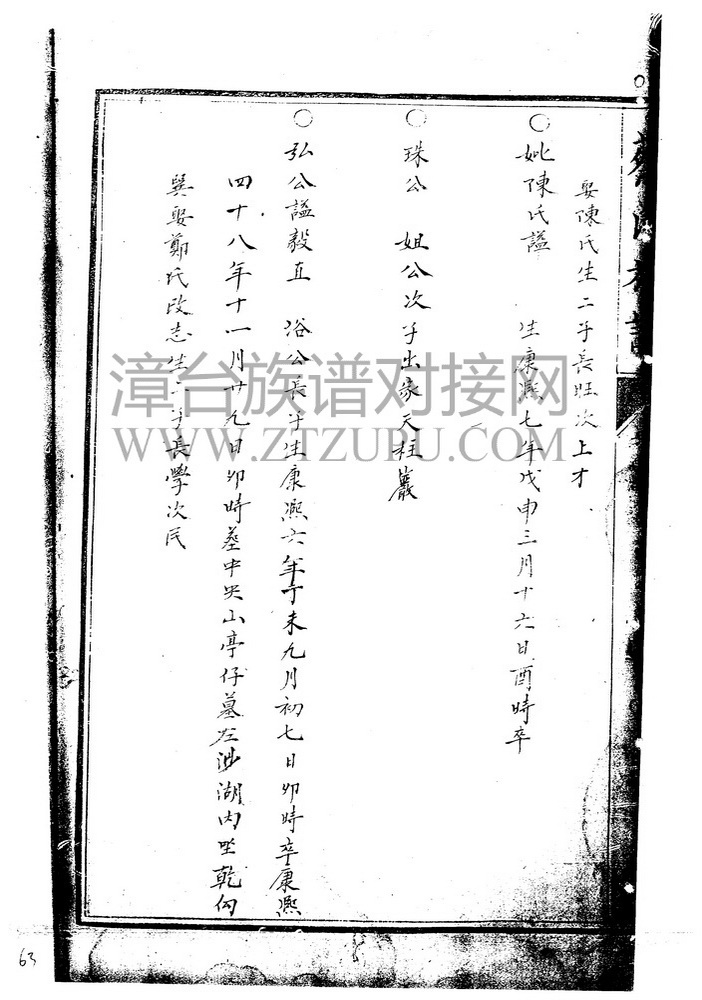 娶陳氏生二子長旺次上才
○妣陳氏謚 生康熙七年戊申三月十六日酉時卒
○珠公 姐公次子出家天柱巖
○弘公謚毅直 浴公長子生康熙六年丁未九月初七日卯時卒康熙
四十八年十一月廿九日卯時葬中央山亭仔墓左沙湖內坐乾向
巽娶鄭氏政志生二子長學次民
漳台族谱对接网
WWW.ZTZUPU.COM
63